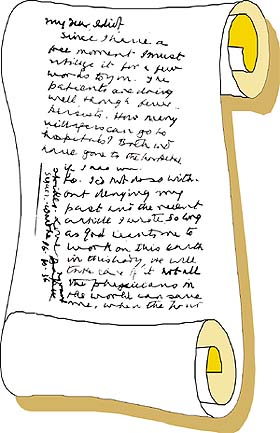 my dear Idiot
Since I have a
free moment I must
utilize it for a few
words to you. The
patients are doing
well though fever
persists. How many
villagers can go to
hospitals? Both
have gone to the
if I was
to. I'd not do so with-
out denying my
past and the recent
article I wrote so long
as God wants me to
work on this earth
in this body, He will
take care of it not all
the physicians in
the world can save
me, when the hour